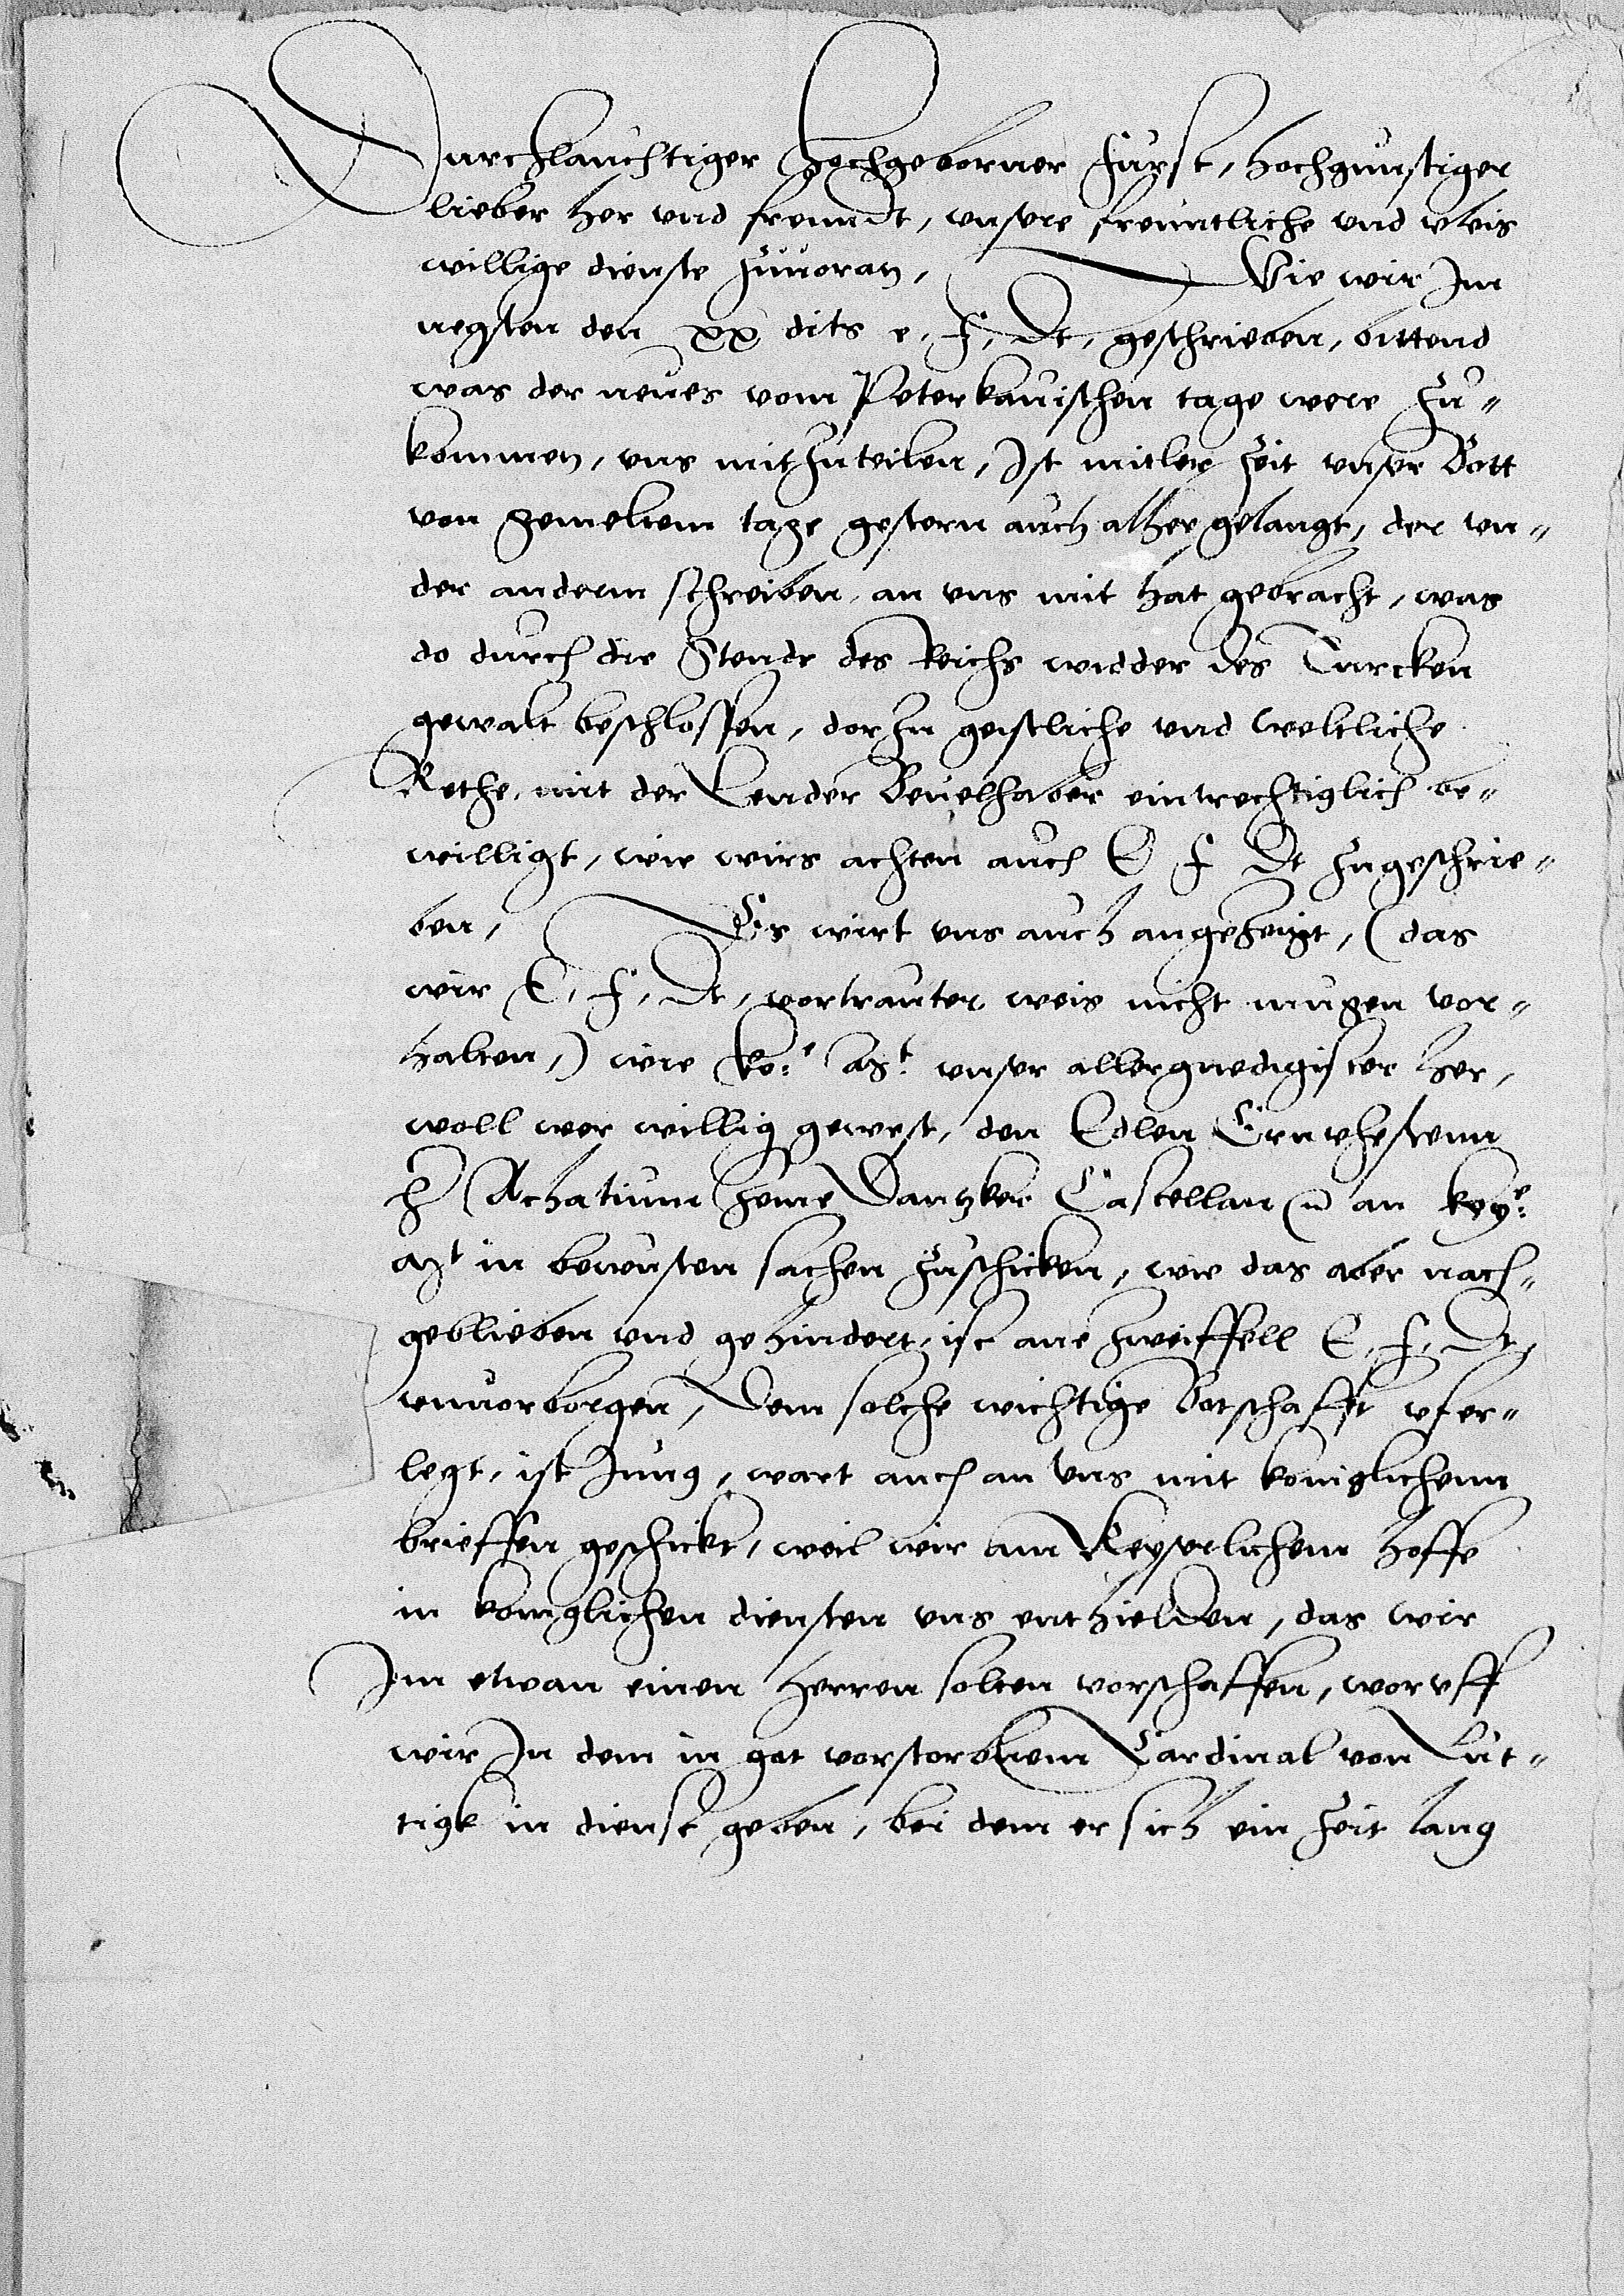 Durchlauchtiger hochgeborner Furst, hochgunstiger
lieber her und freundt, unsere freuntliche und vleis
willige dienste zuuoran, Wie wir Im
negsten den xx dits e. f. Dt. geschrieben, bittend
was der neues vom Peterkauischen tage were zu-
kommen, uns mitzuteilen, Ist mitler zeit unser Bott
von gemeltem tage gestern auch alher gelangt, der un-
der anderm schreiben, an uns mit hat gebracht, was
do durch die Stende des Reichs widder des Turcken
gewalt beschlossen, dorzu geistliche und weltliche
Rethe, mit der Lender Beuelhaber eintrechtiglich be-
willigt, wie wirs achten auch E f Dt zugeschrie-
ben, Es wirt uns auch angezeigt, (das
wir E. f. Dt. vortrauter weis nicht mugen vor-
halten,) wie ko:e Mt: unser allergnedigister her,
woll wer willig gewest, den Edlen Ernvhestenn
h Achatium Zeme Dantzker Castellan an key:e
Mt in bewusten sachen zuschicken, wie das aber nach-
geblieben und gehindert, ist ane zweiffell E. f. Dt.
unuorborgen, Dem solche wichtige Botschafft ufer-
legt, ist Jung, wart auch an uns mit koniglichenn
brieffen geschickt, weil wir am Keyserlichem hoffe
in koniglichen diensten uns enthielden, das wir
Im etwan einen herren solten vorschaffen, woruff
wir In dem in got vorstorbnem Cardinal von Lut-
tigk in dienst geben, bei dem er sich ein zeit lang